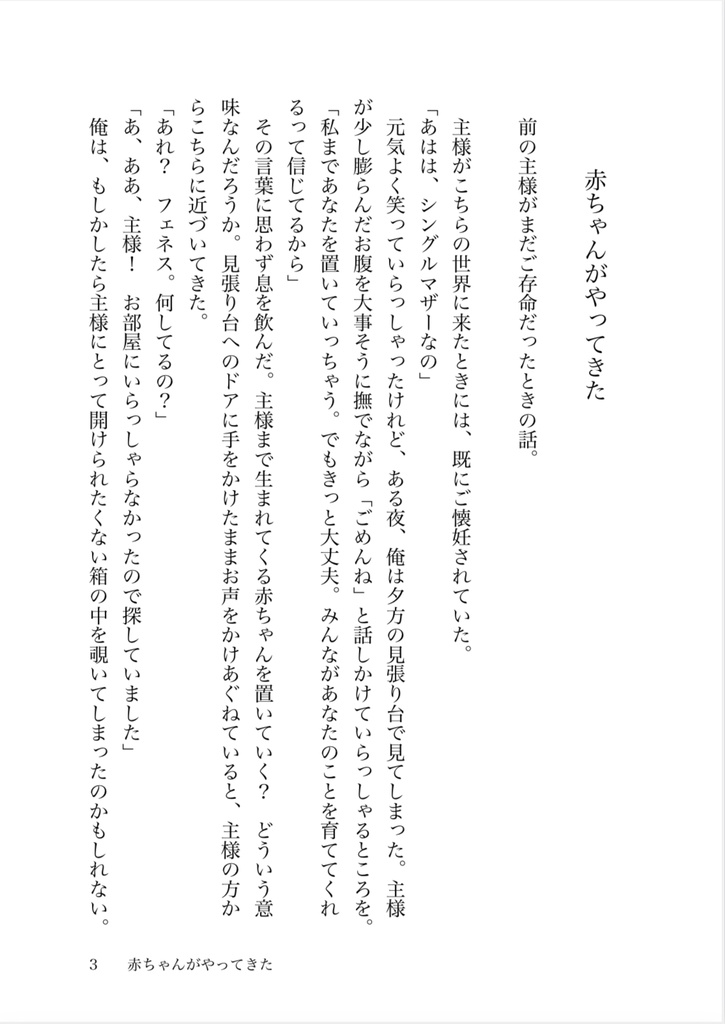 赤ちゃんがやってきた
前の主様がまだご存命だったときの話。
主様がこちらの世界に来たときには、既にご懐妊されていた。
「あはは、シングルマザーなの」
元気よく笑っていらっしゃったけれど、ある夜、俺は夕方の見張り台で見てしまった。主様
が少し膨らんだお腹を大事そうに撫でながら「ごめんね」と話しかけていらっしゃるところを。
「私まであなたを置いていっちゃう。でもきっと大丈夫。みんながあなたのことを育ててくれ
るって信じてるから」
その言葉に思わず息を飲んだ。主様まで生まれてくる赤ちゃんを置いていく?　どういう意
味なんだろうか。見張り台へのドアに手をかけたままお声をかけあぐねていると、主様の方か
らこちらに近づいてきた。
「あれ?　フェネス。何してるの?」
「あ、ああ、主様!　お部屋にいらっしゃらなかったので探していました」
俺は、もしかしたら主様にとって開けられたくない箱の中を覗いてしまったのかもしれない。
3　赤ちゃんがやってきた